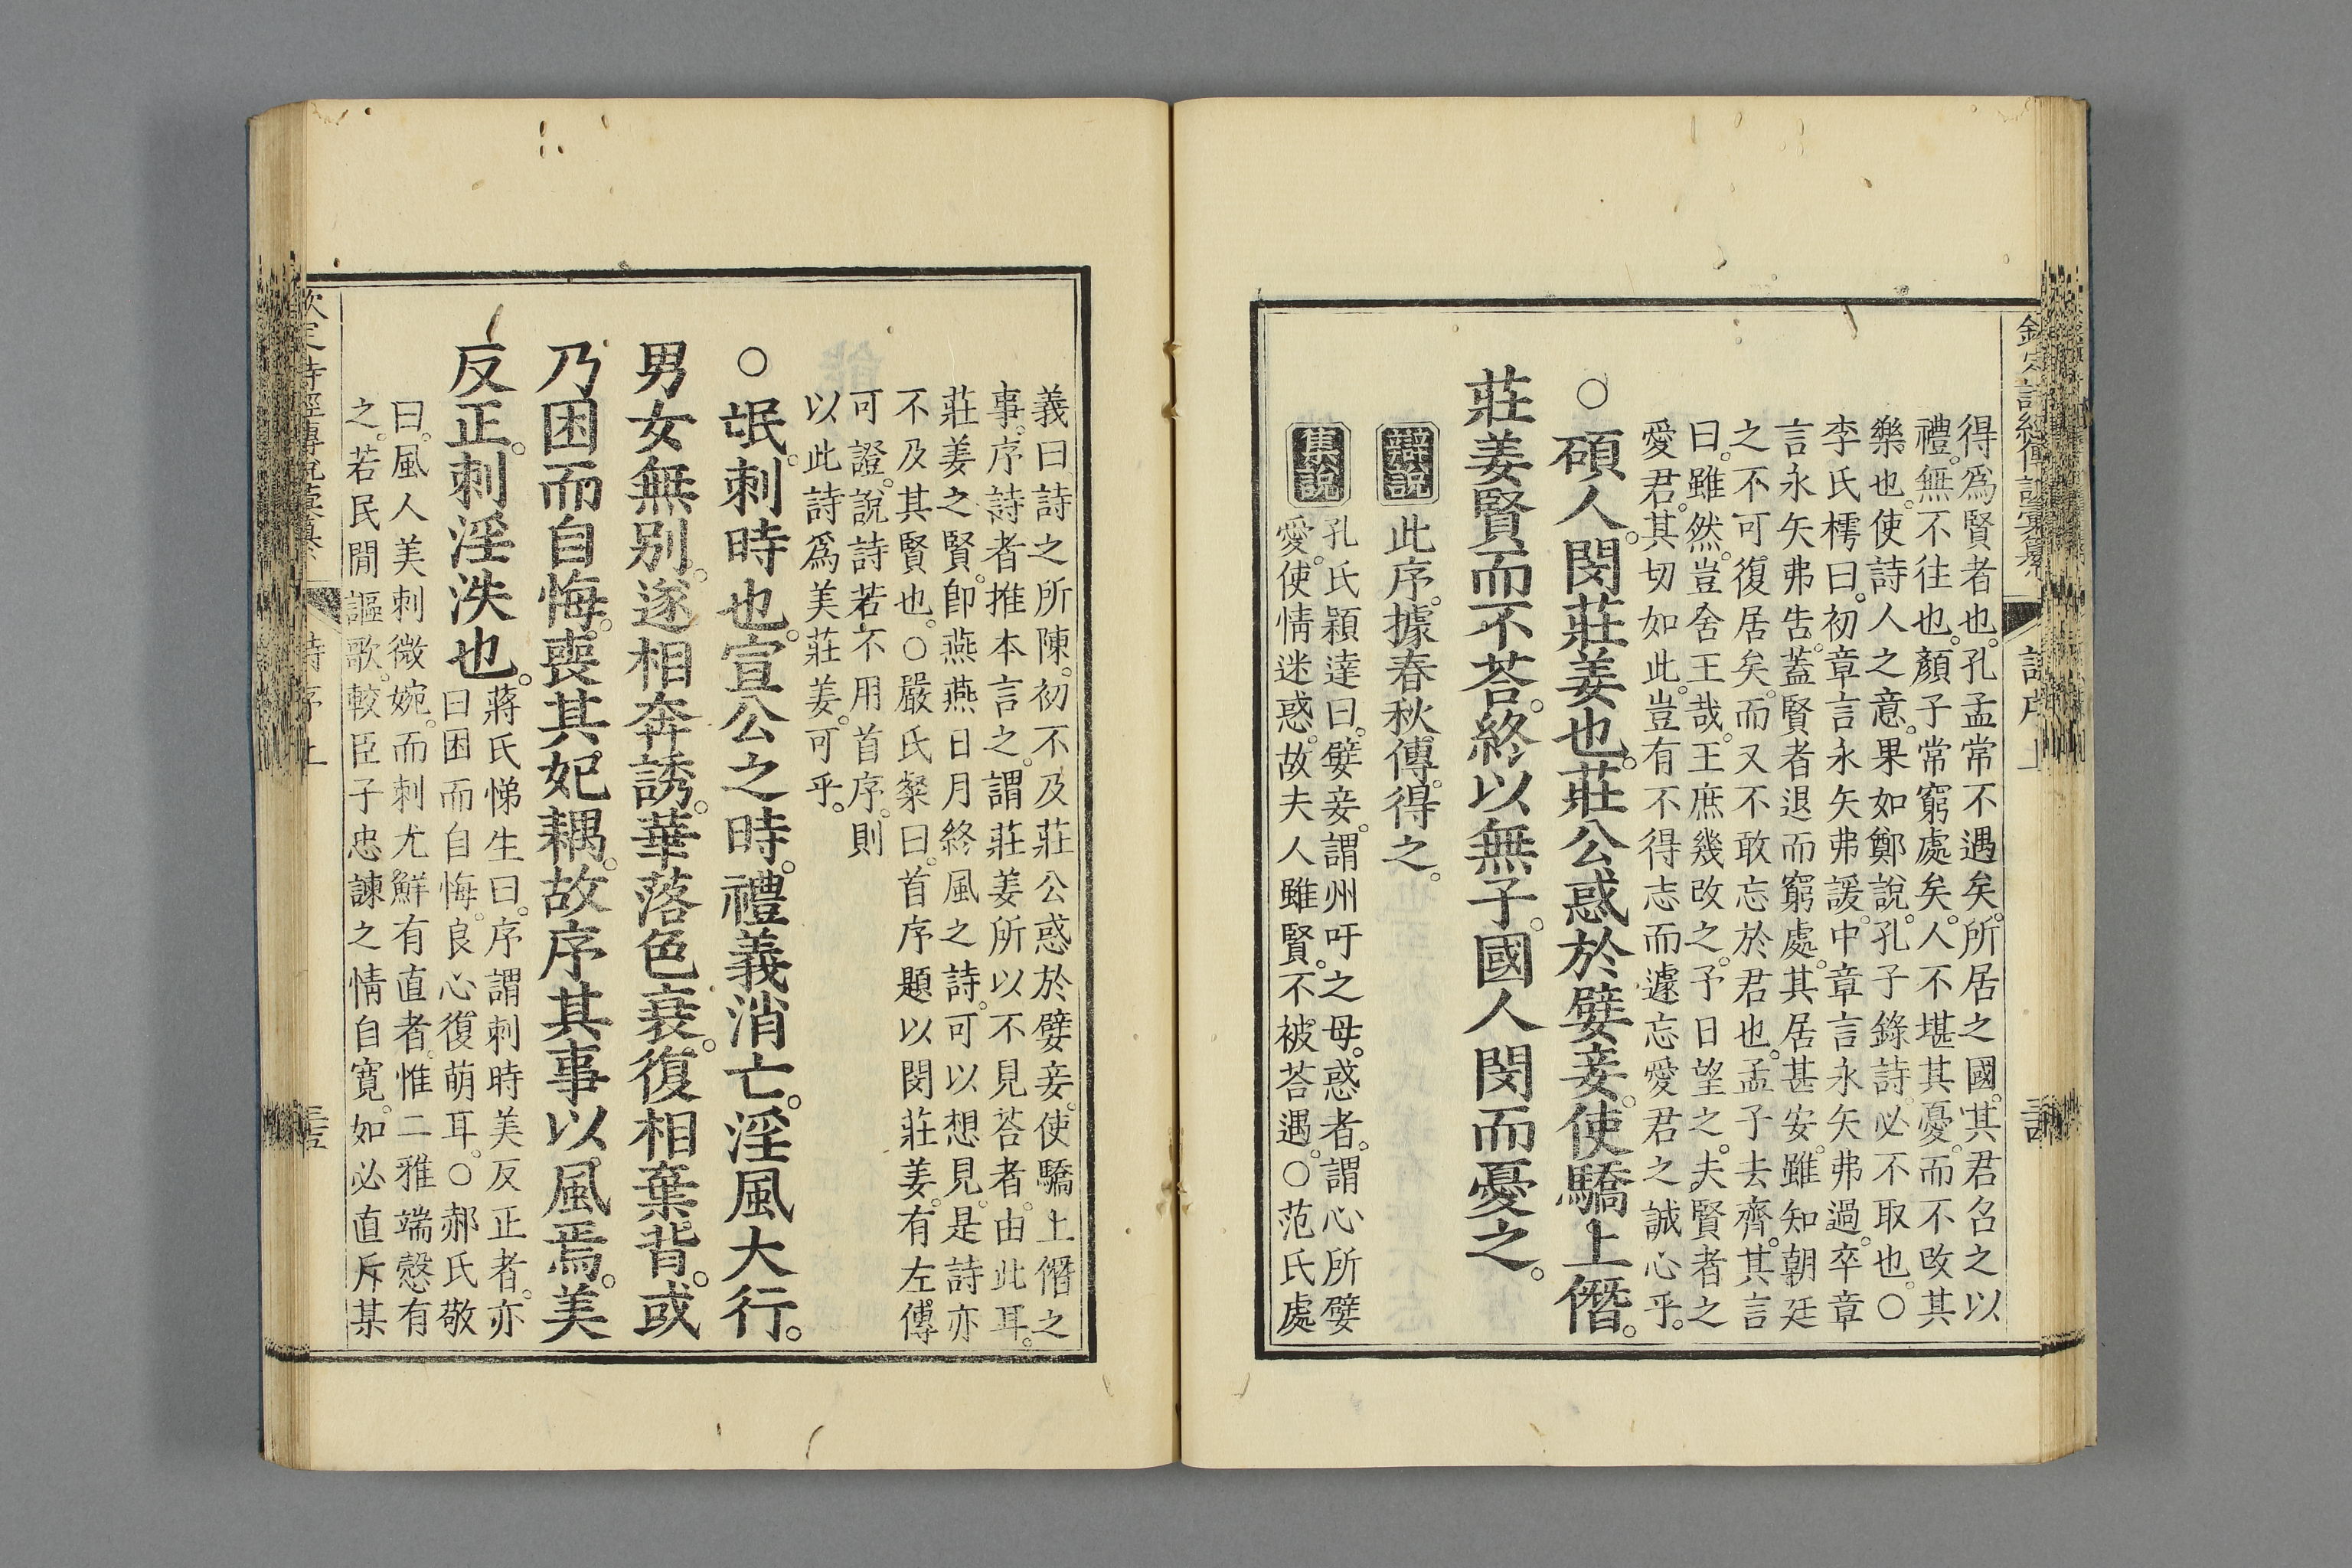 得爲賢者也。孔孟常不遇矣。所居之國。其君召之以
禮。無不往也。顏子常窮處矣。人不堪其憂。而不改其
樂也。使詩人之意。果如鄭說。孔子錄詩。必不取也。○
李氏樗曰。初章言永矢弗諼。中章言永矢弗過。卒章
言永矢弗告。蓋賢者退而窮處。其居甚安。雖知朝廷
之不可復居矣。而又不敢忘於君也。孟子去齊。其言
曰。雖然。豈舍王哉。王庶幾改之。予日望之。夫賢者之
愛君。其切如此。豈有不得志而遽忘愛君之誠心乎。
○碩人。閔莊姜也。莊公惑於嬖妾。使驕上僭。
莊姜賢而不荅。終以無子。國人閔而憂之。
辯說 此序。據春秋傳。得之。
集說 孔氏穎達曰。嬖妾。謂州吁之母。惑者。謂心所嬖
愛。使情迷惑。故夫人雖賢。不被荅遇。○范氏處
義曰。詩之所陳。初不及莊公惑於嬖妾。使驕上僭之
事。序詩者推本言之。謂莊姜所以不見荅者。由此耳。
莊姜之賢。卽燕燕日月終風之詩。可以想見。是詩亦
不及其賢也。○嚴氏粲曰。首序題以閔莊姜。有左傳
可證。說詩若不用首序。則
以此詩爲美莊姜。可乎。
○氓。刺時也。宣公之時。禮義消亡。淫風大行。
男女無别。遂相奔誘。華落色衰。復相棄背。或
乃困而自悔。喪其妃耦。故序其事以風焉。美
反正。刺淫泆也。
蔣氏悌生曰。序謂刺時美反正者。亦
曰困而自悔。良心復萌耳。○郝氏敬
曰。風人美刺微婉。而刺尤鮮有直者。惟二雅端愨有
之。若民閒謳歌。較臣子忠諫之情自寬。如必直斥某
詩序上